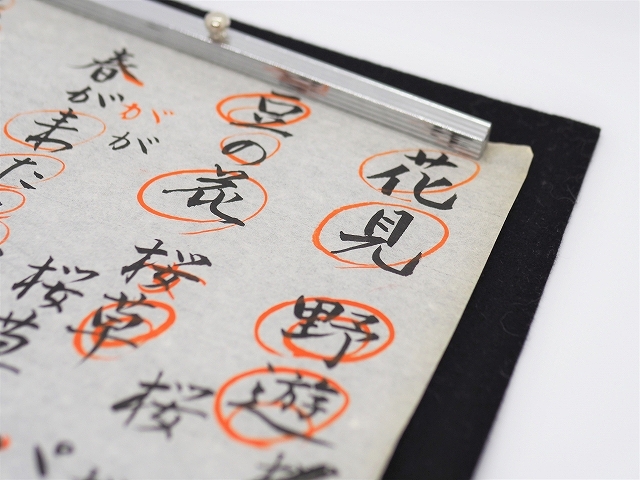 花見
野遊
豆の花
桜草
桜
が
が
春が
た
桜草
パ